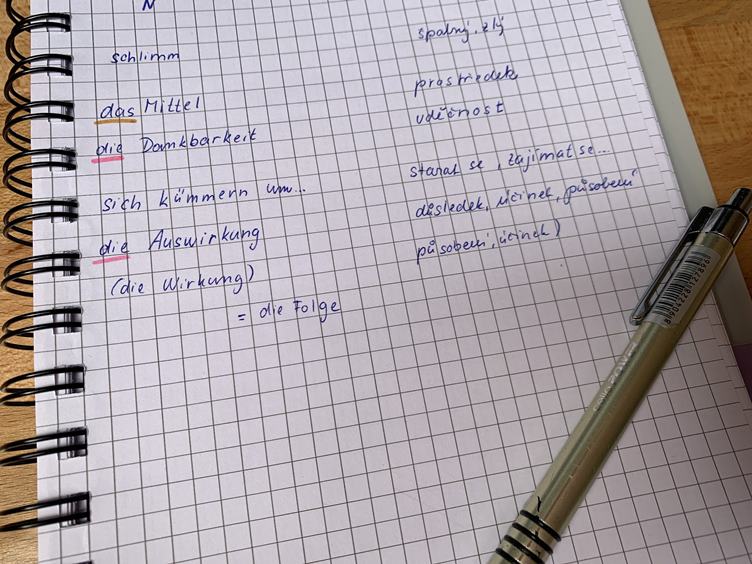 schlimm špatný, zlý
das Mittel prostředek
die Dankbarkeit vděčnost
sich kümmern um... starat se, zajímat se...
die Auswirkung důsledek, účinek, působení
(die Wirkung) působení, účinek)
= die Folge